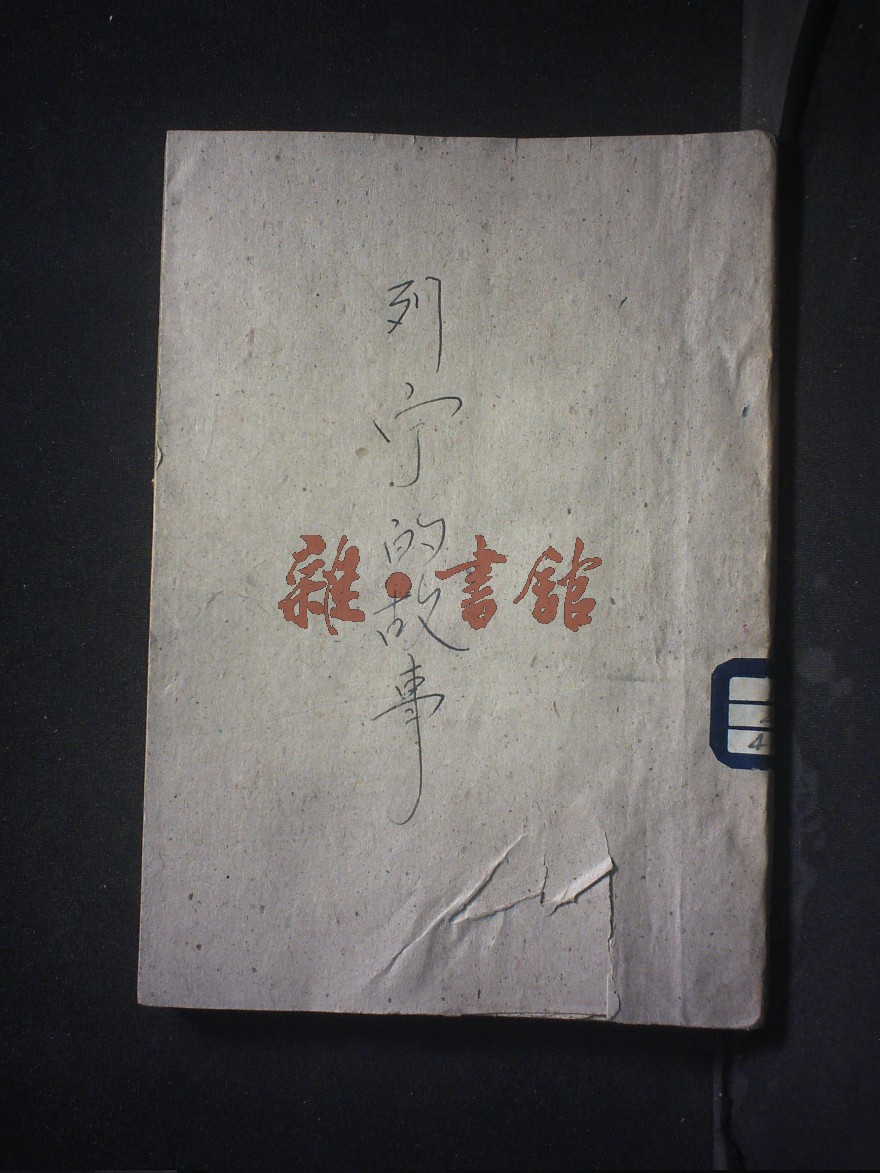 列宁的故事
雜·書館
2
4